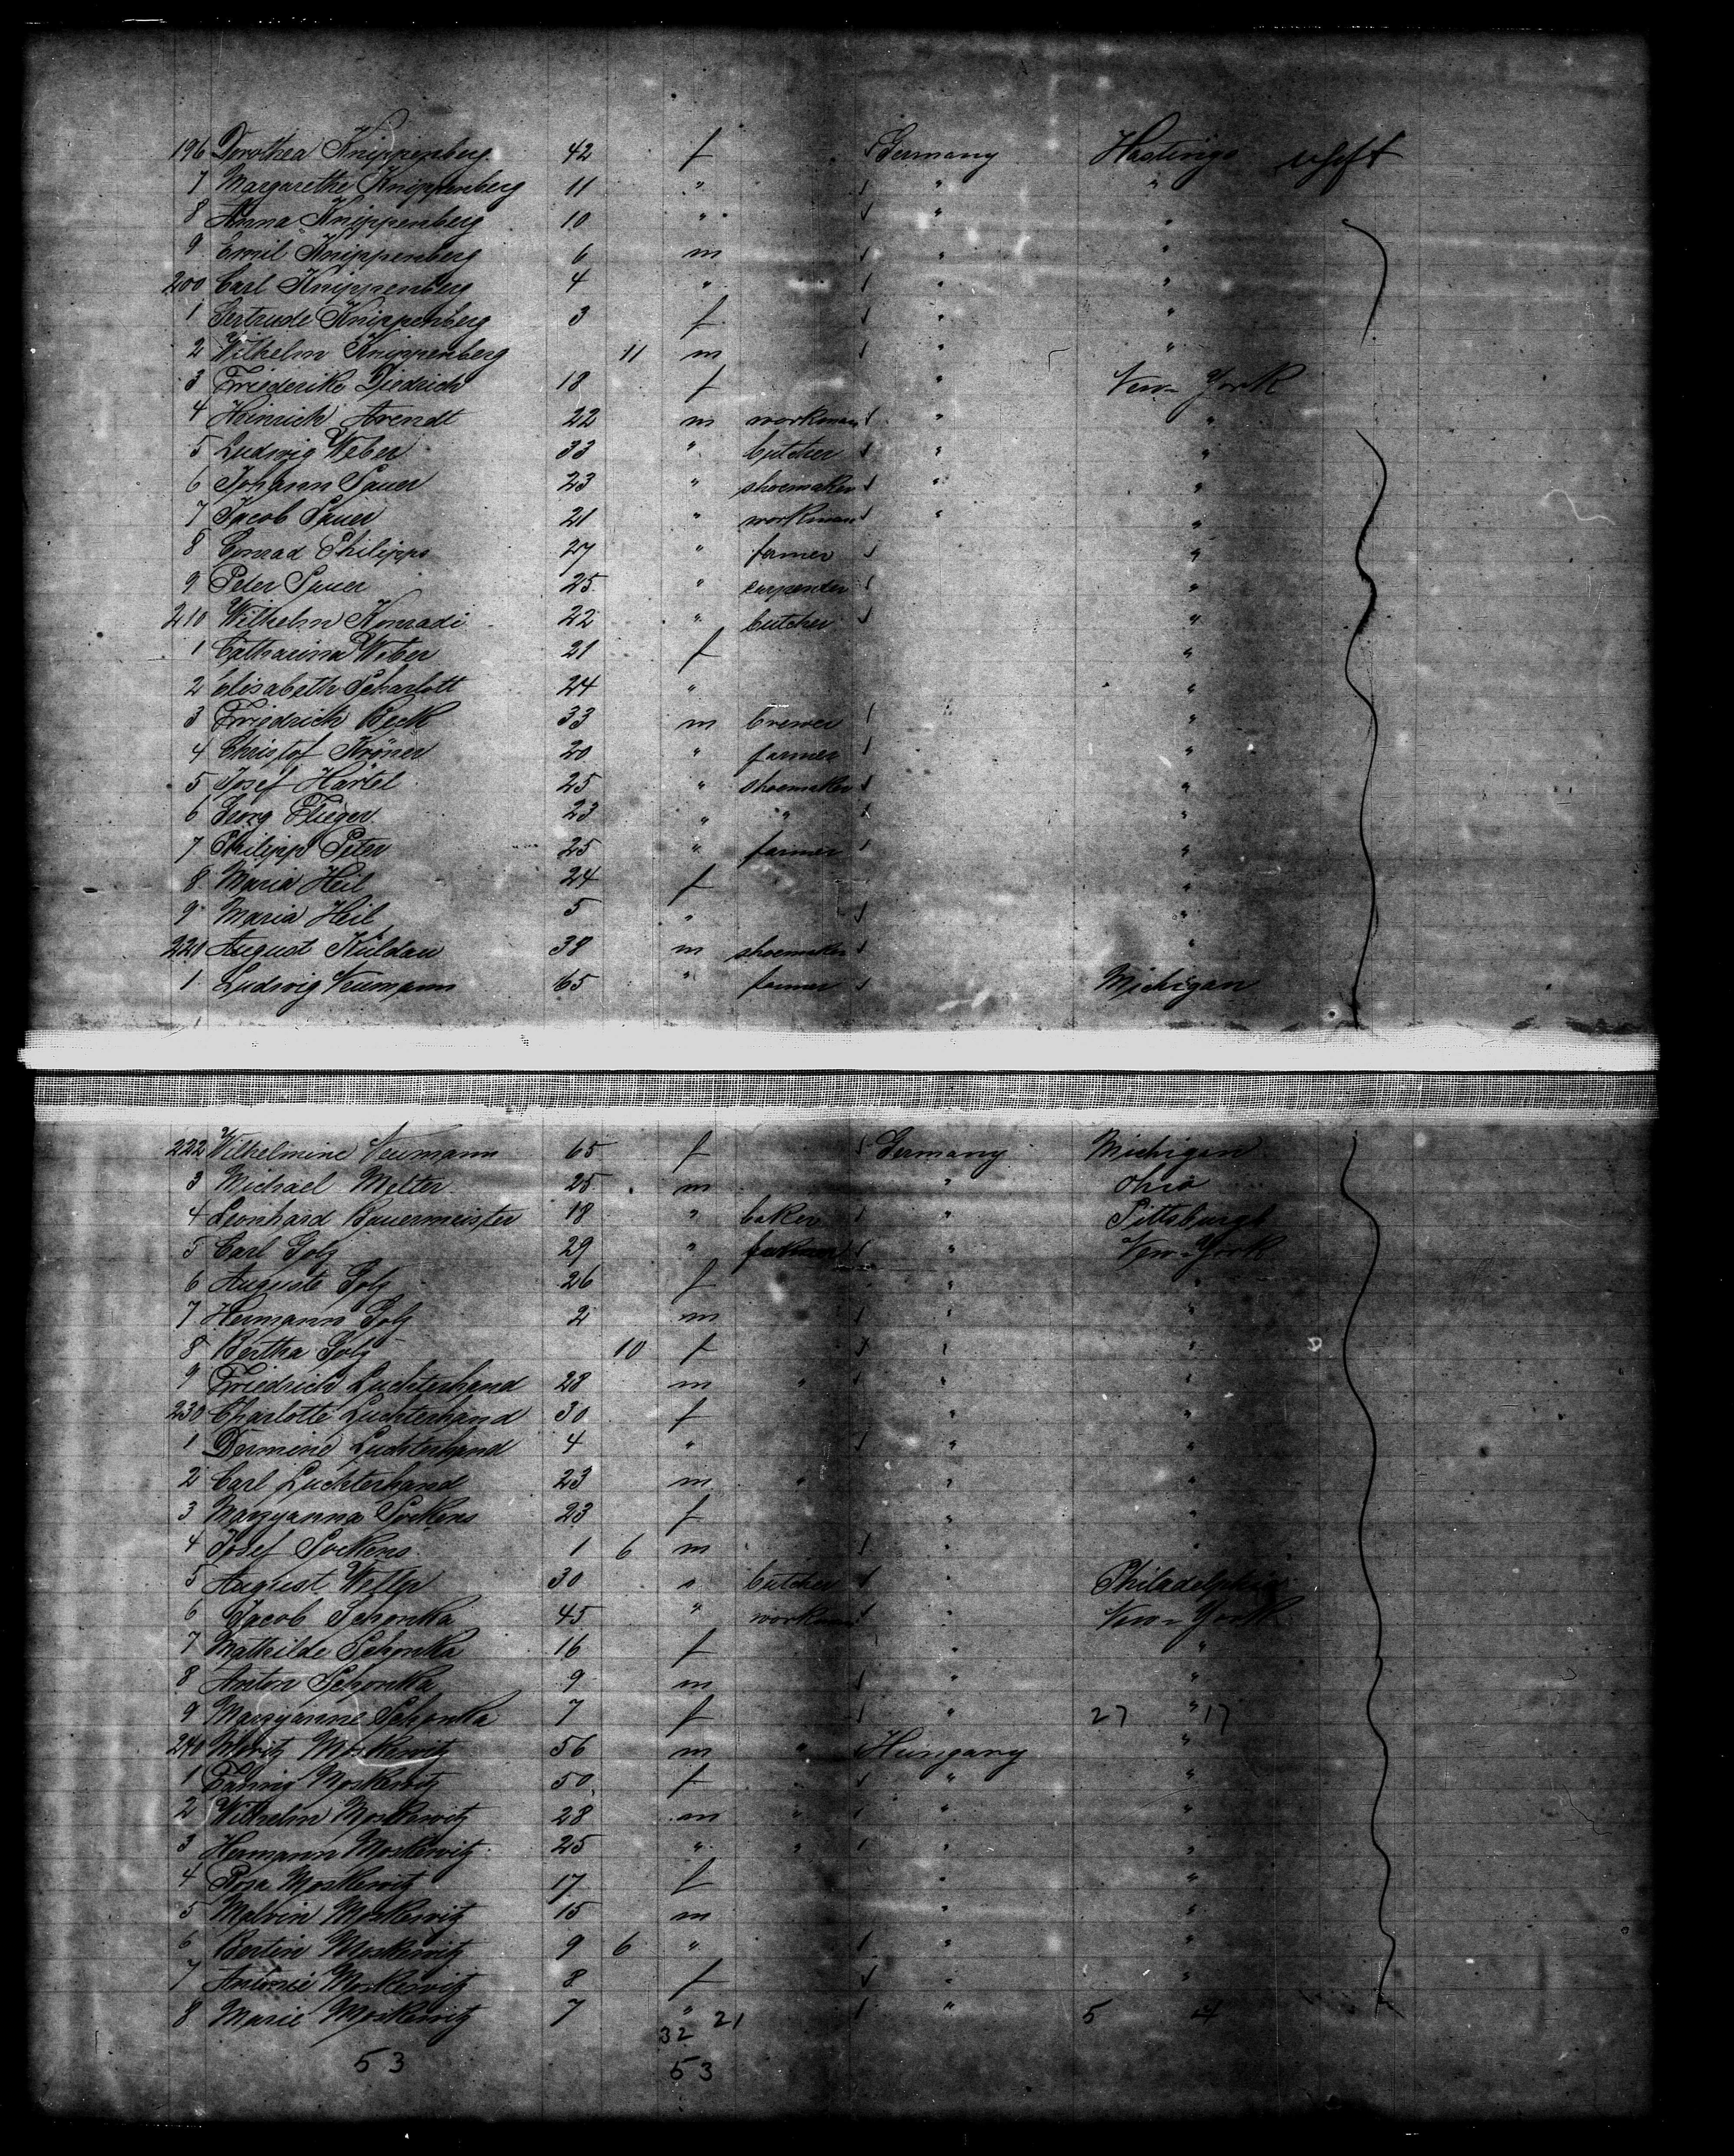 196 Dorothea Knippenberg 42 f Germany Hastings
7 Margarethe Knippenberg 11 " " "
8 Anna Knippenberg 10 " " "
9 Emil Knippenberg 6 m " "
200 Carl Knippenberg 4 " " "
1 Gertrude Knippenberg 3 f " "
2 Wilhelm Knippenberg 11 m " "
3 Friederike Diedrich 18 f " New-York
4 Heinrich Arendt 22 m workman " "
5 Ludwig Weber 33 " butcher " "
6 Johann Sauer 23 " shoemaker " "
7 Jacob Sauer 21 " workman " "
8 Conrad Philipps 27 " farmer "
9 Peter Sauer 25 " carpenter "
210 Wilhelm Konradi 22 " butcher "
1 Catharina Weber 21 f "
2 Elisabeth Scharlott 24 " "
3 Friedrich Beck 33 m brewer "
4 Christof Kröner 20 " farmer "
5 Josef Härtel 25 " shoemaker "
6 Georg Flieger 23 " " "
7 Philipp Peter 25 " farmer "
8 Maria Heil 24 f "
9 Maria Heil 5 " "
220 August Kuldau 38 m shoemaker "
1 Ludwig Neumann 65 " farmer Michigan
222 Wilhelmine Neumann 65 f Germany Michigan
3 Michael Melter 25 m " Ohio
4 Leonhard Bauermeister 18 " baker " Pittsburgh
5 Carl Golz 29 " " New-York
6 Auguste Golz 26 f " "
7 Hermann Golz 2 m " "
8 Bertha Golz 10 f " "
9 Friedrich Luchterhand 28 m " " "
230 Charlotte Luchterhand 30 f " "
1 Luchterhand 4 " " "
2 Carl Luchterhand 23 m " " "
3 Maryanna 23 f " "
4 Josef 1 6 m " "
5 August 30 " butcher " Philadelphia
6 Jacob Schonka 45 " workman " New-York
7 Mathilde Schonka 16 f " "
8 Anton Schonka 9 m " "
9 Maryanne Schonka 7 f " 27 " 17
240 Moritz Moskewitz 56 m " Hungary "
1 Fanny Moskewitz 50 f " "
2 Wilhelm Moskewitz 28 m " " "
3 Hermann Moskewitz 25 " " " "
4 Rosa Moskewitz 17 f " "
5 Malvin Moskewitz 15 m " "
6 Bertin Moskewitz 9 6 " " "
7 Antonie Moskewitz 8 f " "
8 Marie Moskewitz 7 " " 5 4
32 21
53 53